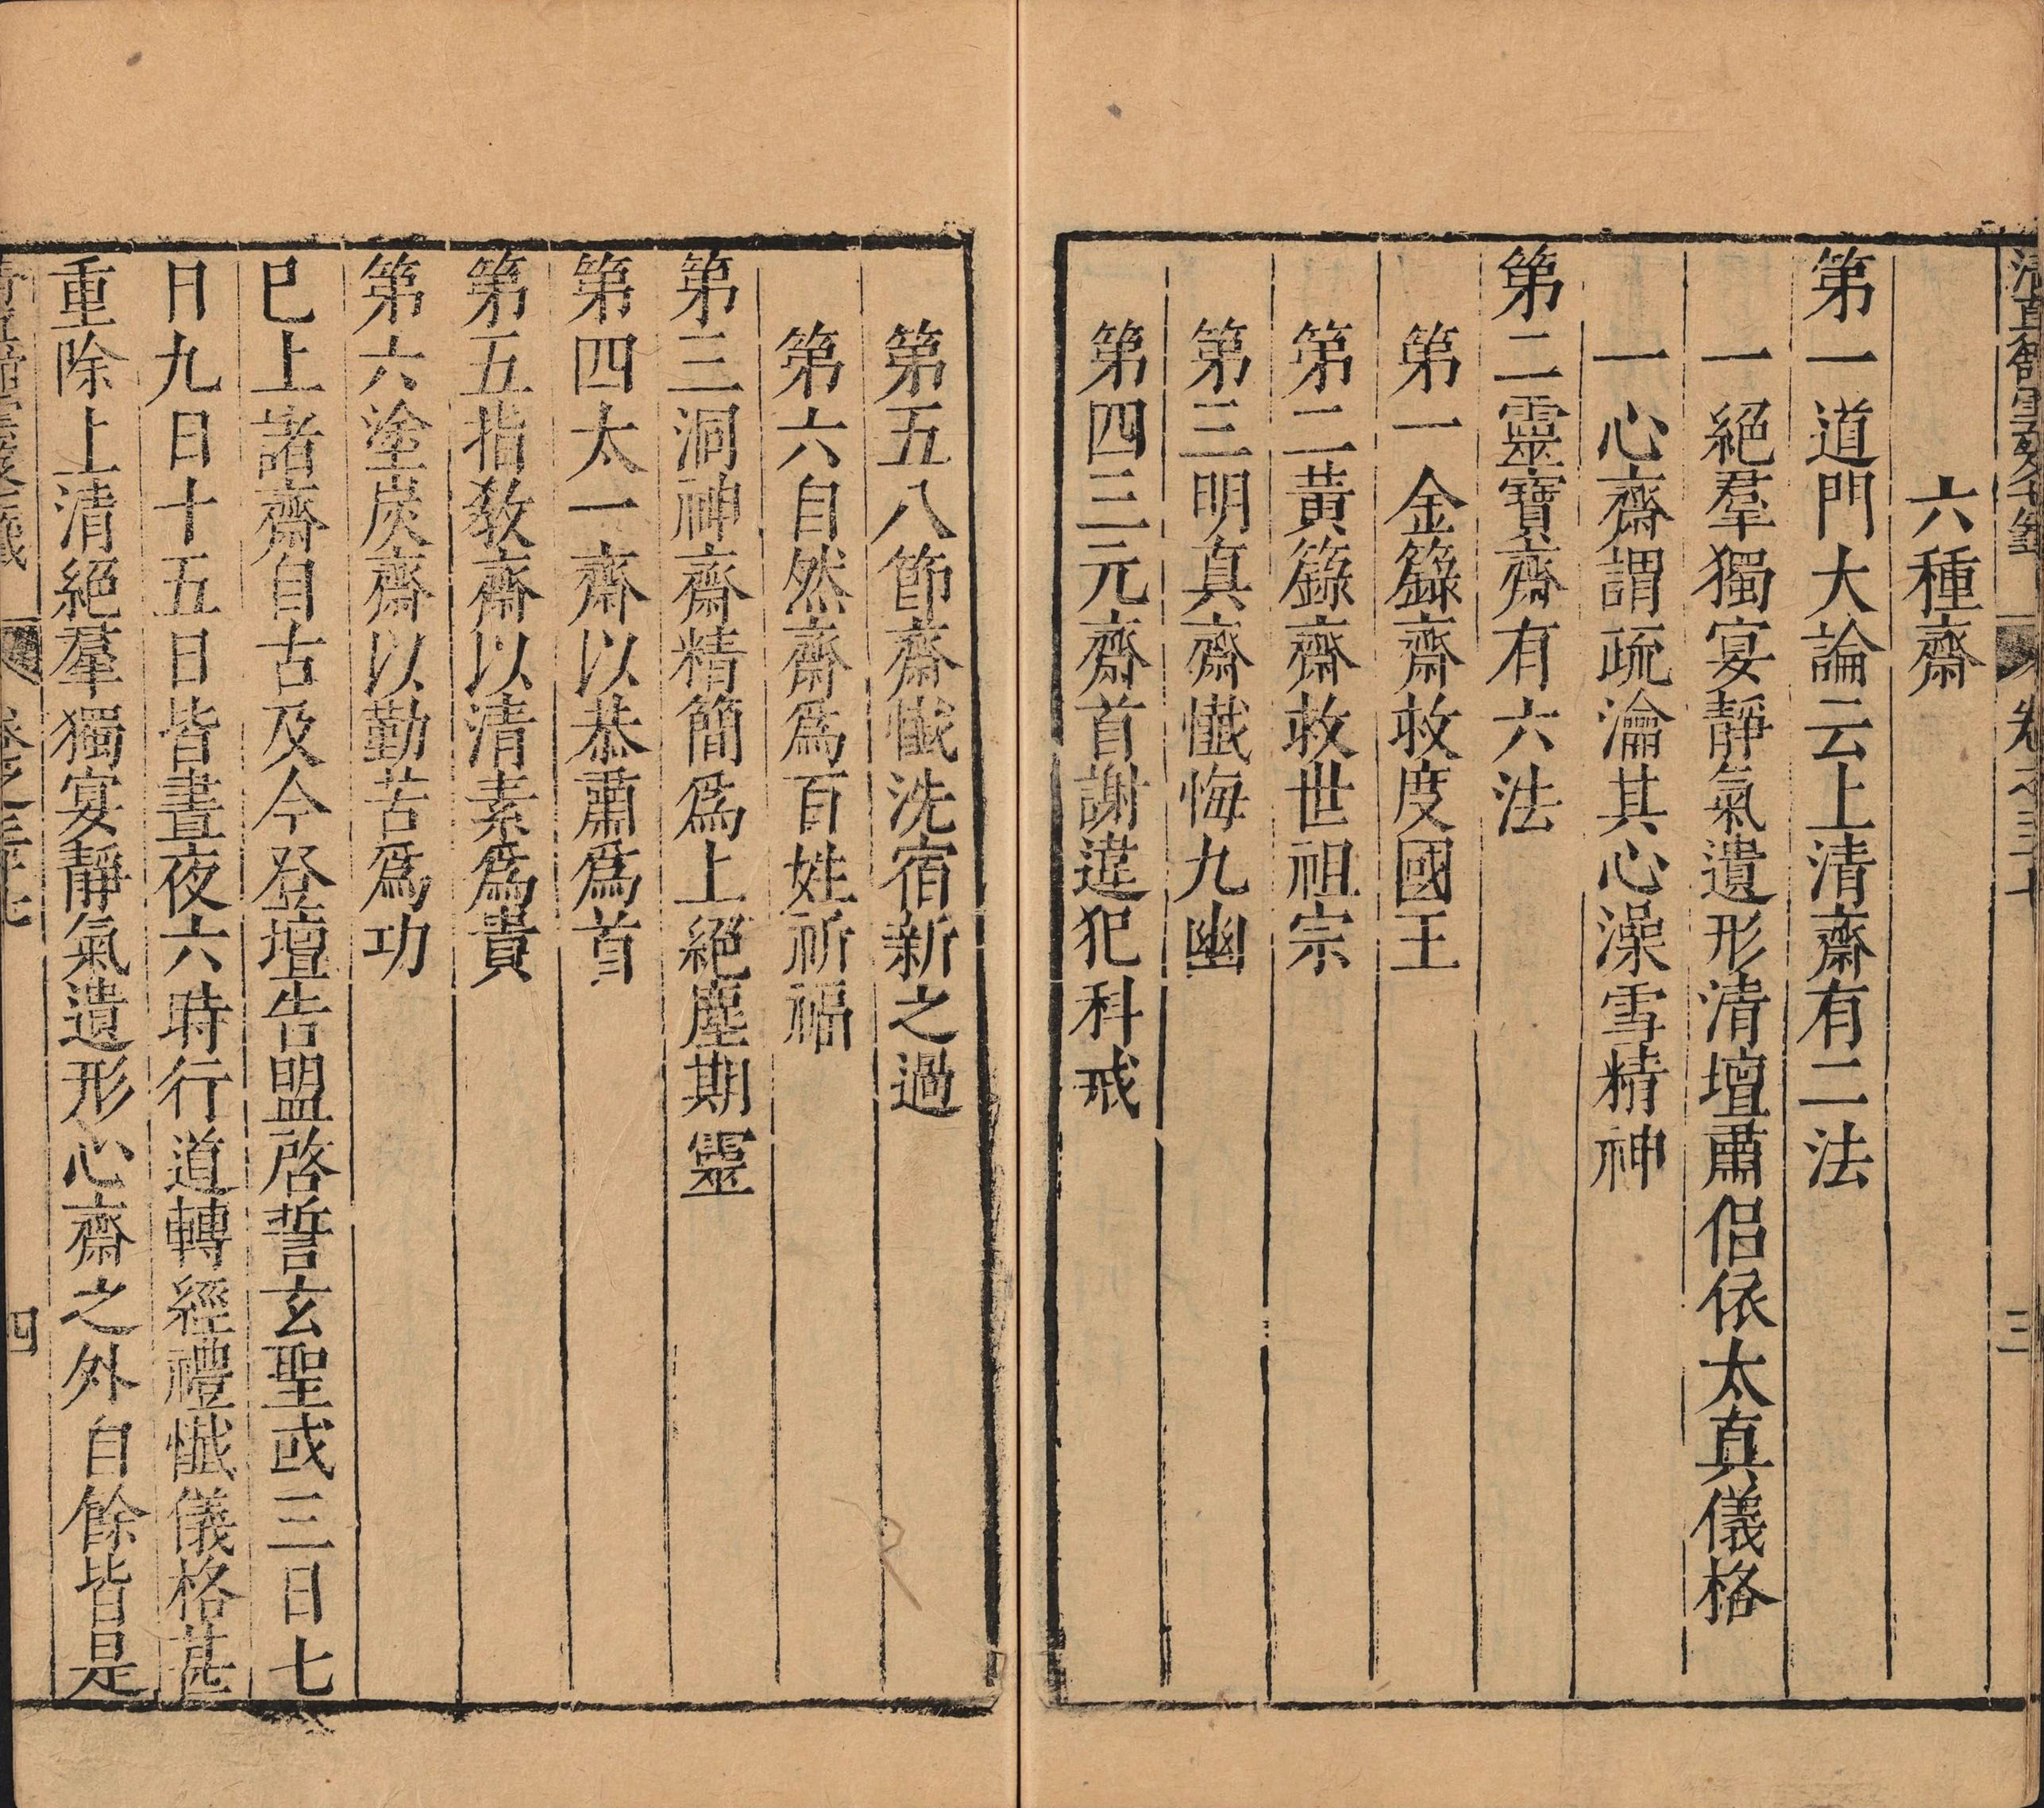 六種齋
第一道門大論云上清齋有二法
一絕羣獨宴靜氣遺形清壇肅侶依太真儀格
一心齋謂疏瀹其心澡雪精神
第二靈寶齋有六法
第一金籙齋救度國王
第二黃籙齋救世祖宗
第三明真齋懺悔九幽
第四三元齋首謝違犯科戒
第五八節齋懺洗宿新之過
第六自然齋爲百姓祈福
第三洞神齋精簡爲上絕塵期靈
第四太一齋以恭肅爲首
第五指敎齋以清素爲貴
第六塗炭齋以勤苦爲功
巳上諸齋自古及今登壇告盟啓誓玄聖或三日七
日九日十五日皆晝夜六時行道轉經禮懺儀格甚
重除上清絕羣獨宴靜氣遺形心齋之外自餘皆是
卷之三十七
四